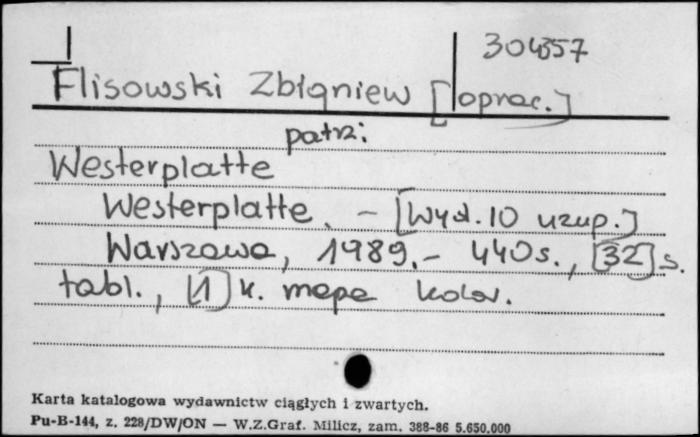 304357
Flisowski Zbigniew [oprac.]
patrz:
Westerplatte
Westerplatte. - [Wyd. 10 uzup.]
Warszawa, 1989.- 440 s., [32] s.
tabl., [1] k. mapa kolor.
Karta katalogowa wydawnictw ciągłych i zwartych.
Pu-B-144, z. 228/DW/ON — W.Z.Graf. Milicz, zam. 388-86 5.650.000